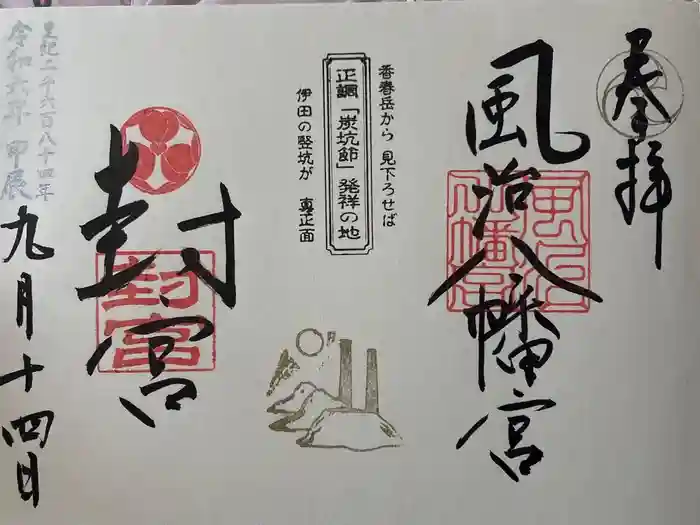 奉拝
風治八幡宮
風治八幡宮
香春岳から 見下ろせば
正調「炭坑節」発祥の地
伊田の竪坑が 真正面
封宮
封宮
皇紀二千六百八十四年
令和六年 甲辰
九月十四日